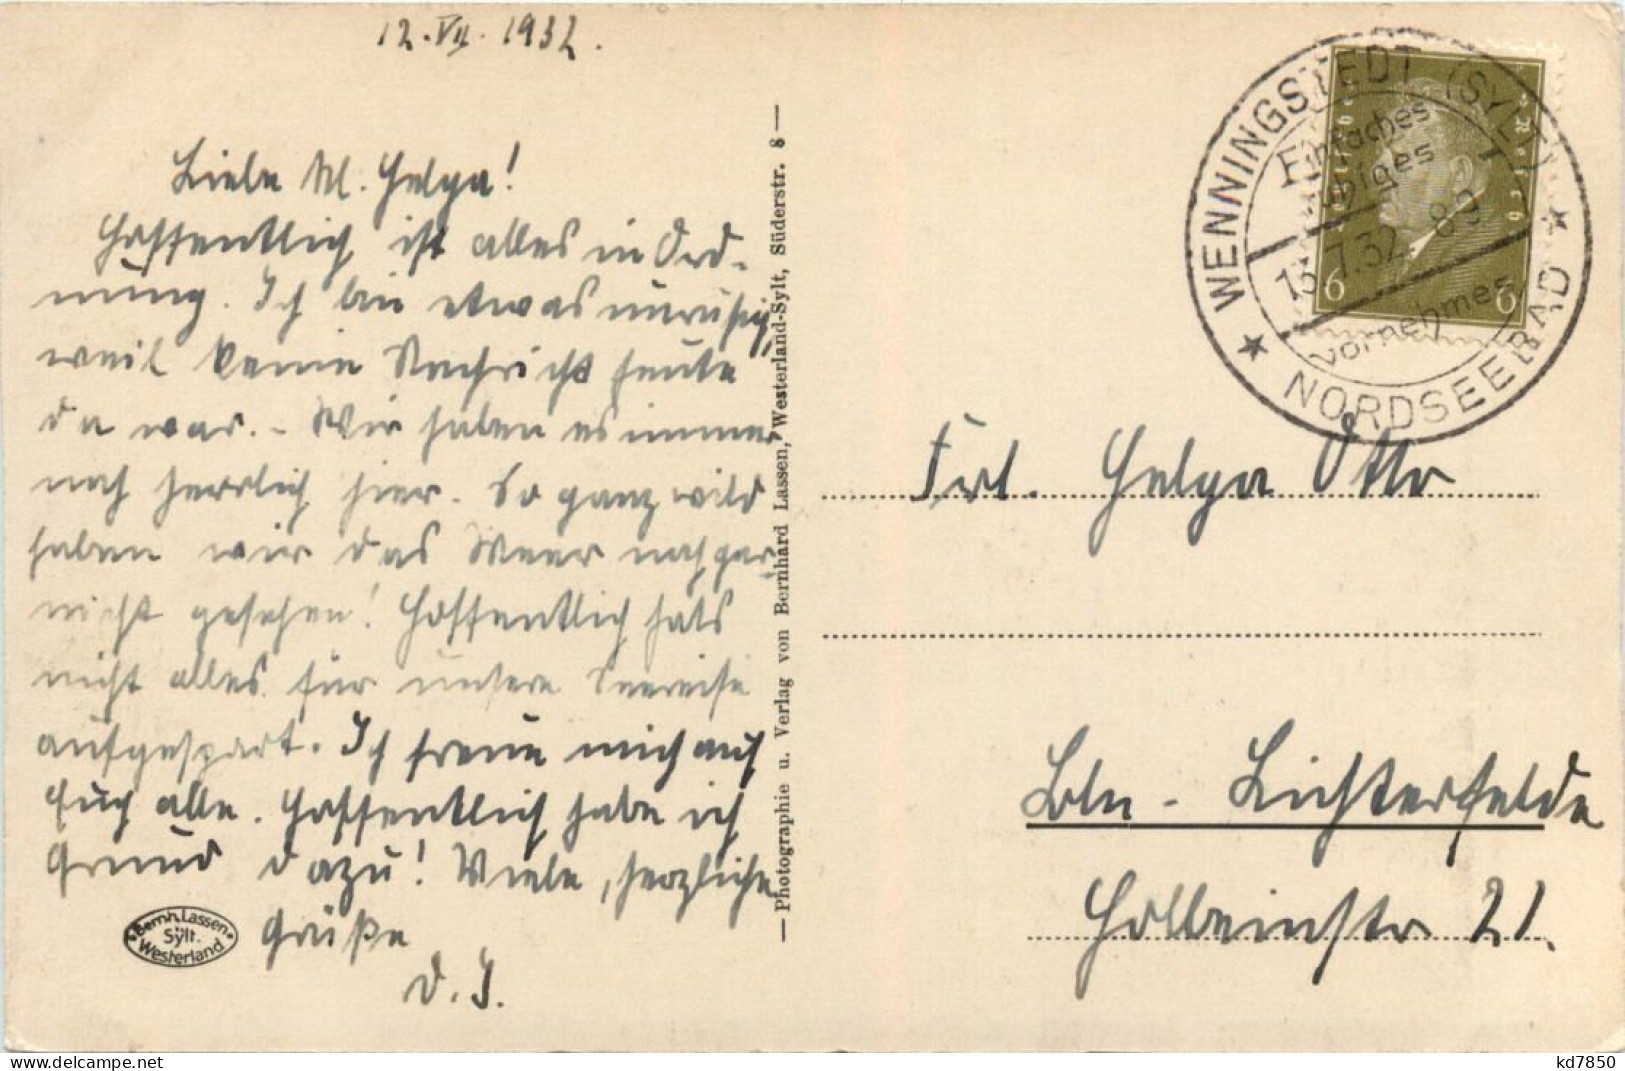 12. VII. 1932.
Liebe M. Helga!
Hoffentlich ist alles in Ord-
nung. Ich bin etwas unruhig,
weil keine Nachricht heute
da war. - Wir haben es immer
noch herrlich hier. So ganz wild
haben wir das Meer noch gar
nicht gesehen! Hoffentlich hats
nicht alles für unsere Seereise
aufgespart. Ich freue mich auf
Euch alle. Hoffentlich habe ich
Grund dazu! Viele, herzliche
Grüße
D. J.
Bernh. Lassen
Sylt.
Westerland
— Photographie u. Verlag von Bernhard Lassen, Westerland-Sylt, Süderstr. 8 —
WENNINGSTEDT (SYLT)
Einfaches
13.7.32. 8-9
vornehmes
NORDSEEBAD
6 6
Frl. Helga Otto
Bln - Lichterfelde
Holbeinstr 21.
kd7850